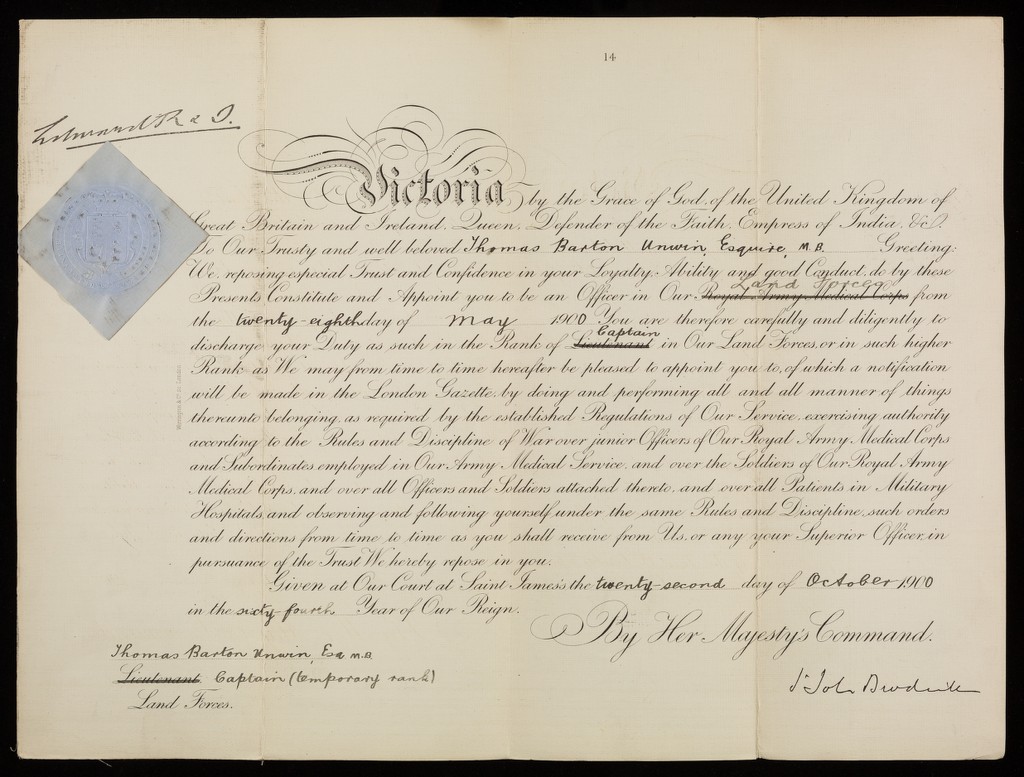 14
Edward R & I.
Victoria by the Grace of God, of the United Kingdom of
Great Britain and Ireland, Queen, Defender of the Faith, Empress of India, &c.
To Our Trusty and well beloved Thomas Barton Unwin, Esquire, M.B. Greeting:
We, reposing especial Trust and Confidence in your Loyalty, Ability and good Conduct, do by these
Land Forces
Presents, Constitute and Appoint you to be an Officer in Our Royal Army Medical Corps from
the twenty-eighth day of May 1900 You are therefore carefully and diligently to
Captain
discharge your Duty as such in the Rank of Lieutenant in Our Land Forces, or in such higher
Rank as We may from time to time hereafter be pleased to appoint you to, of which a notification
will be made in the London Gazette, by doing and performing all and all manner of things
thereunto belonging, as required by the established Regulations of Our Service, exercising authority
according to the Rules and Discipline of War over junior Officers of Our Royal Army Medical Corps
and Subordinates employed in Our Army Medical Service, and over the Soldiers of Our Royal Army
Medical Corps, and over all Officers and Soldiers attached thereto, and over all Patients in Military
Hospitals, and observing and following yourself under the same Rules and Discipline, such orders
and directions from time to time as you shall receive from Us, or any your Superior Officer, in
pursuance of the Trust We hereby repose in you.
Given at Our Court at Saint James's the twenty-second day of October 1900
in the sixty-fourth Year of Our Reign.
By Her Majesty's Command.
Thomas Barton Unwin, Esq M.B.
Lieutenant Captain (temporary rank)
Land Forces.
St John Brodrick